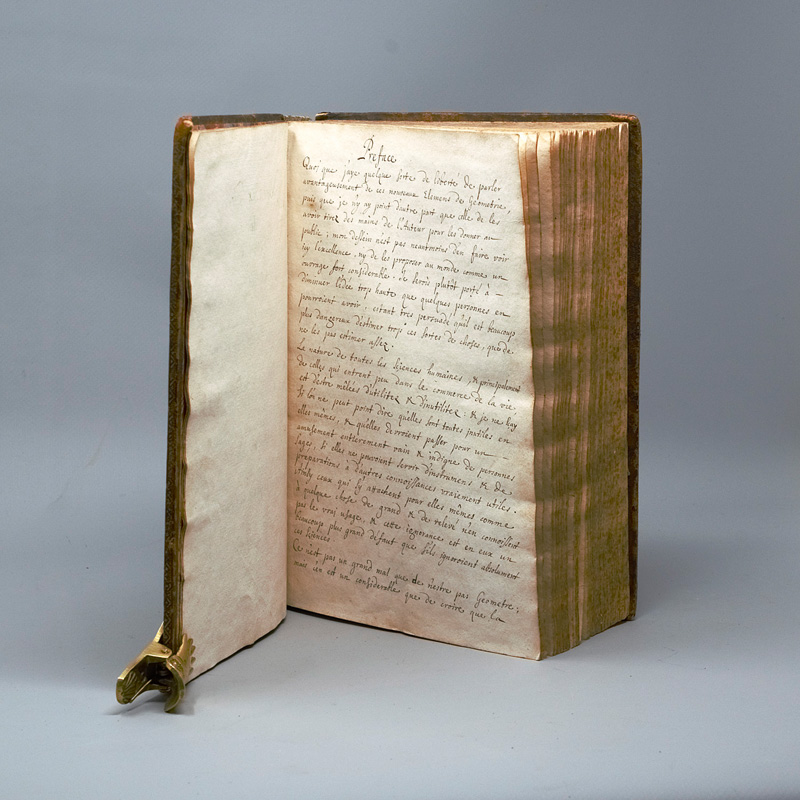 Preface
Quoi que j'aye quelque sorte de liberté de parler
avantageusement de ces nouveaux Elemens de Geometrie,
puis que je n'y ay point d'autre part que celle de les
avoir tirez des mains de l'Auteur pour les donner au
public; mon dessein n'est pas neantmoins d'en faire voir
icy l'excellence, ny de les proposer au monde comme un
ouvrage fort considerable. Je serois plutôt porté à —
diminuer l'idée trop haute que quelques personnes en
pourroient avoir, estant tres persuadé qu'il est beaucoup
plus dangereux d'estimer trop ces sortes de choses, que de
ne les pas estimer assez.
La nature de toutes les sciences humaines, & principalement
de celles qui entrent peu dans le commerce de la vie,
est d'estre mêlées d'utilitez & d'inutilitez. & je ne sçay
si l'on ne peut point dire qu'elles sont toutes inutiles en
elles mêmes, & qu'elles devroient passer pour un —
amusement entierement vain & indigne de personnes
sages, si elles ne pouvoient servir d'instrumens & de
preparations à d'autres connoissances vraiement utiles.
Ainsy ceux qui s'y attachent pour elles mêmes comme
à quelque chose de grand & de relevé n'en connoissent
pas le vrai usage, & cette ignorance est en eux un
beaucoup plus grand defaut que s'ils ignoroient absolument
ces sciences.
Ce n'est pas un grand mal que de n'estre pas Geometre;
mais c'en est un considerable que de croire que la